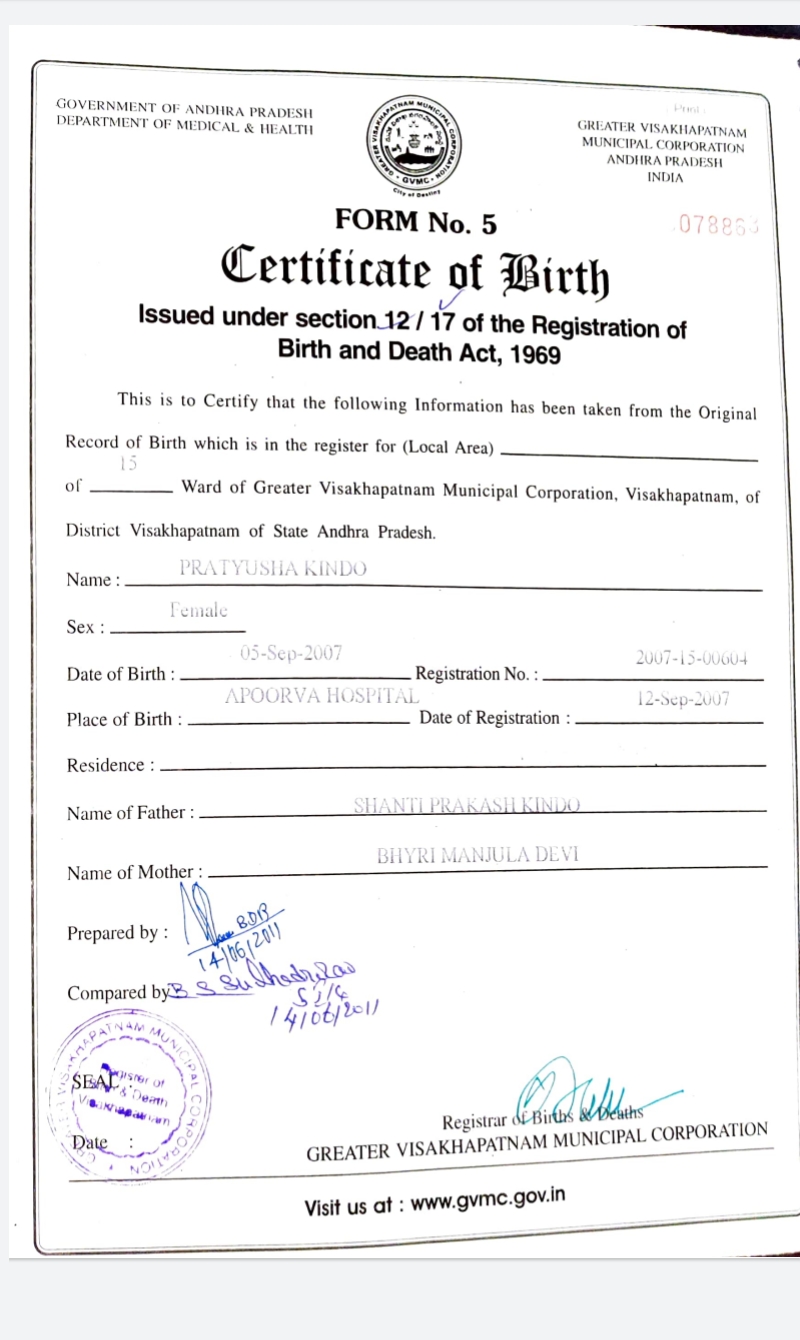 GOVERNMENT OF ANDHRA PRADESH
DEPARTMENT OF MEDICAL & HEALTH
GREATER VISAKHAPATNAM MUNICIPAL CORPORATION
GVMC
City of Destiny
Print
GREATER VISAKHAPATNAM
MUNICIPAL CORPORATION
ANDHRA PRADESH
INDIA
FORM No. 5
078863
Certificate of Birth
Issued under section 12 / 17 of the Registration of
Birth and Death Act, 1969
This is to Certify that the following Information has been taken from the Original
Record of Birth which is in the register for (Local Area)
of 15 Ward of Greater Visakhapatnam Municipal Corporation, Visakhapatnam, of
District Visakhapatnam of State Andhra Pradesh.
Name : PRATYUSHA KINDO
Sex : Female
Date of Birth : 05-Sep-2007 Registration No. : 2007-15-00604
Place of Birth : APOORVA HOSPITAL Date of Registration : 12-Sep-2007
Residence :
Name of Father : SHANTI PRAKASH KINDO
Name of Mother : BHYRI MANJULA DEVI
Prepared by :
14/06/2011
Compared by B S
14/06/2011
GREATER VISAKHAPATNAM MUNICIPAL CORPORATION
Registrar of
Birth & Death
Visakhapatnam
SEAL :
Date :
Registrar of Births & Deaths
GREATER VISAKHAPATNAM MUNICIPAL CORPORATION
Visit us at : www.gvmc.gov.in